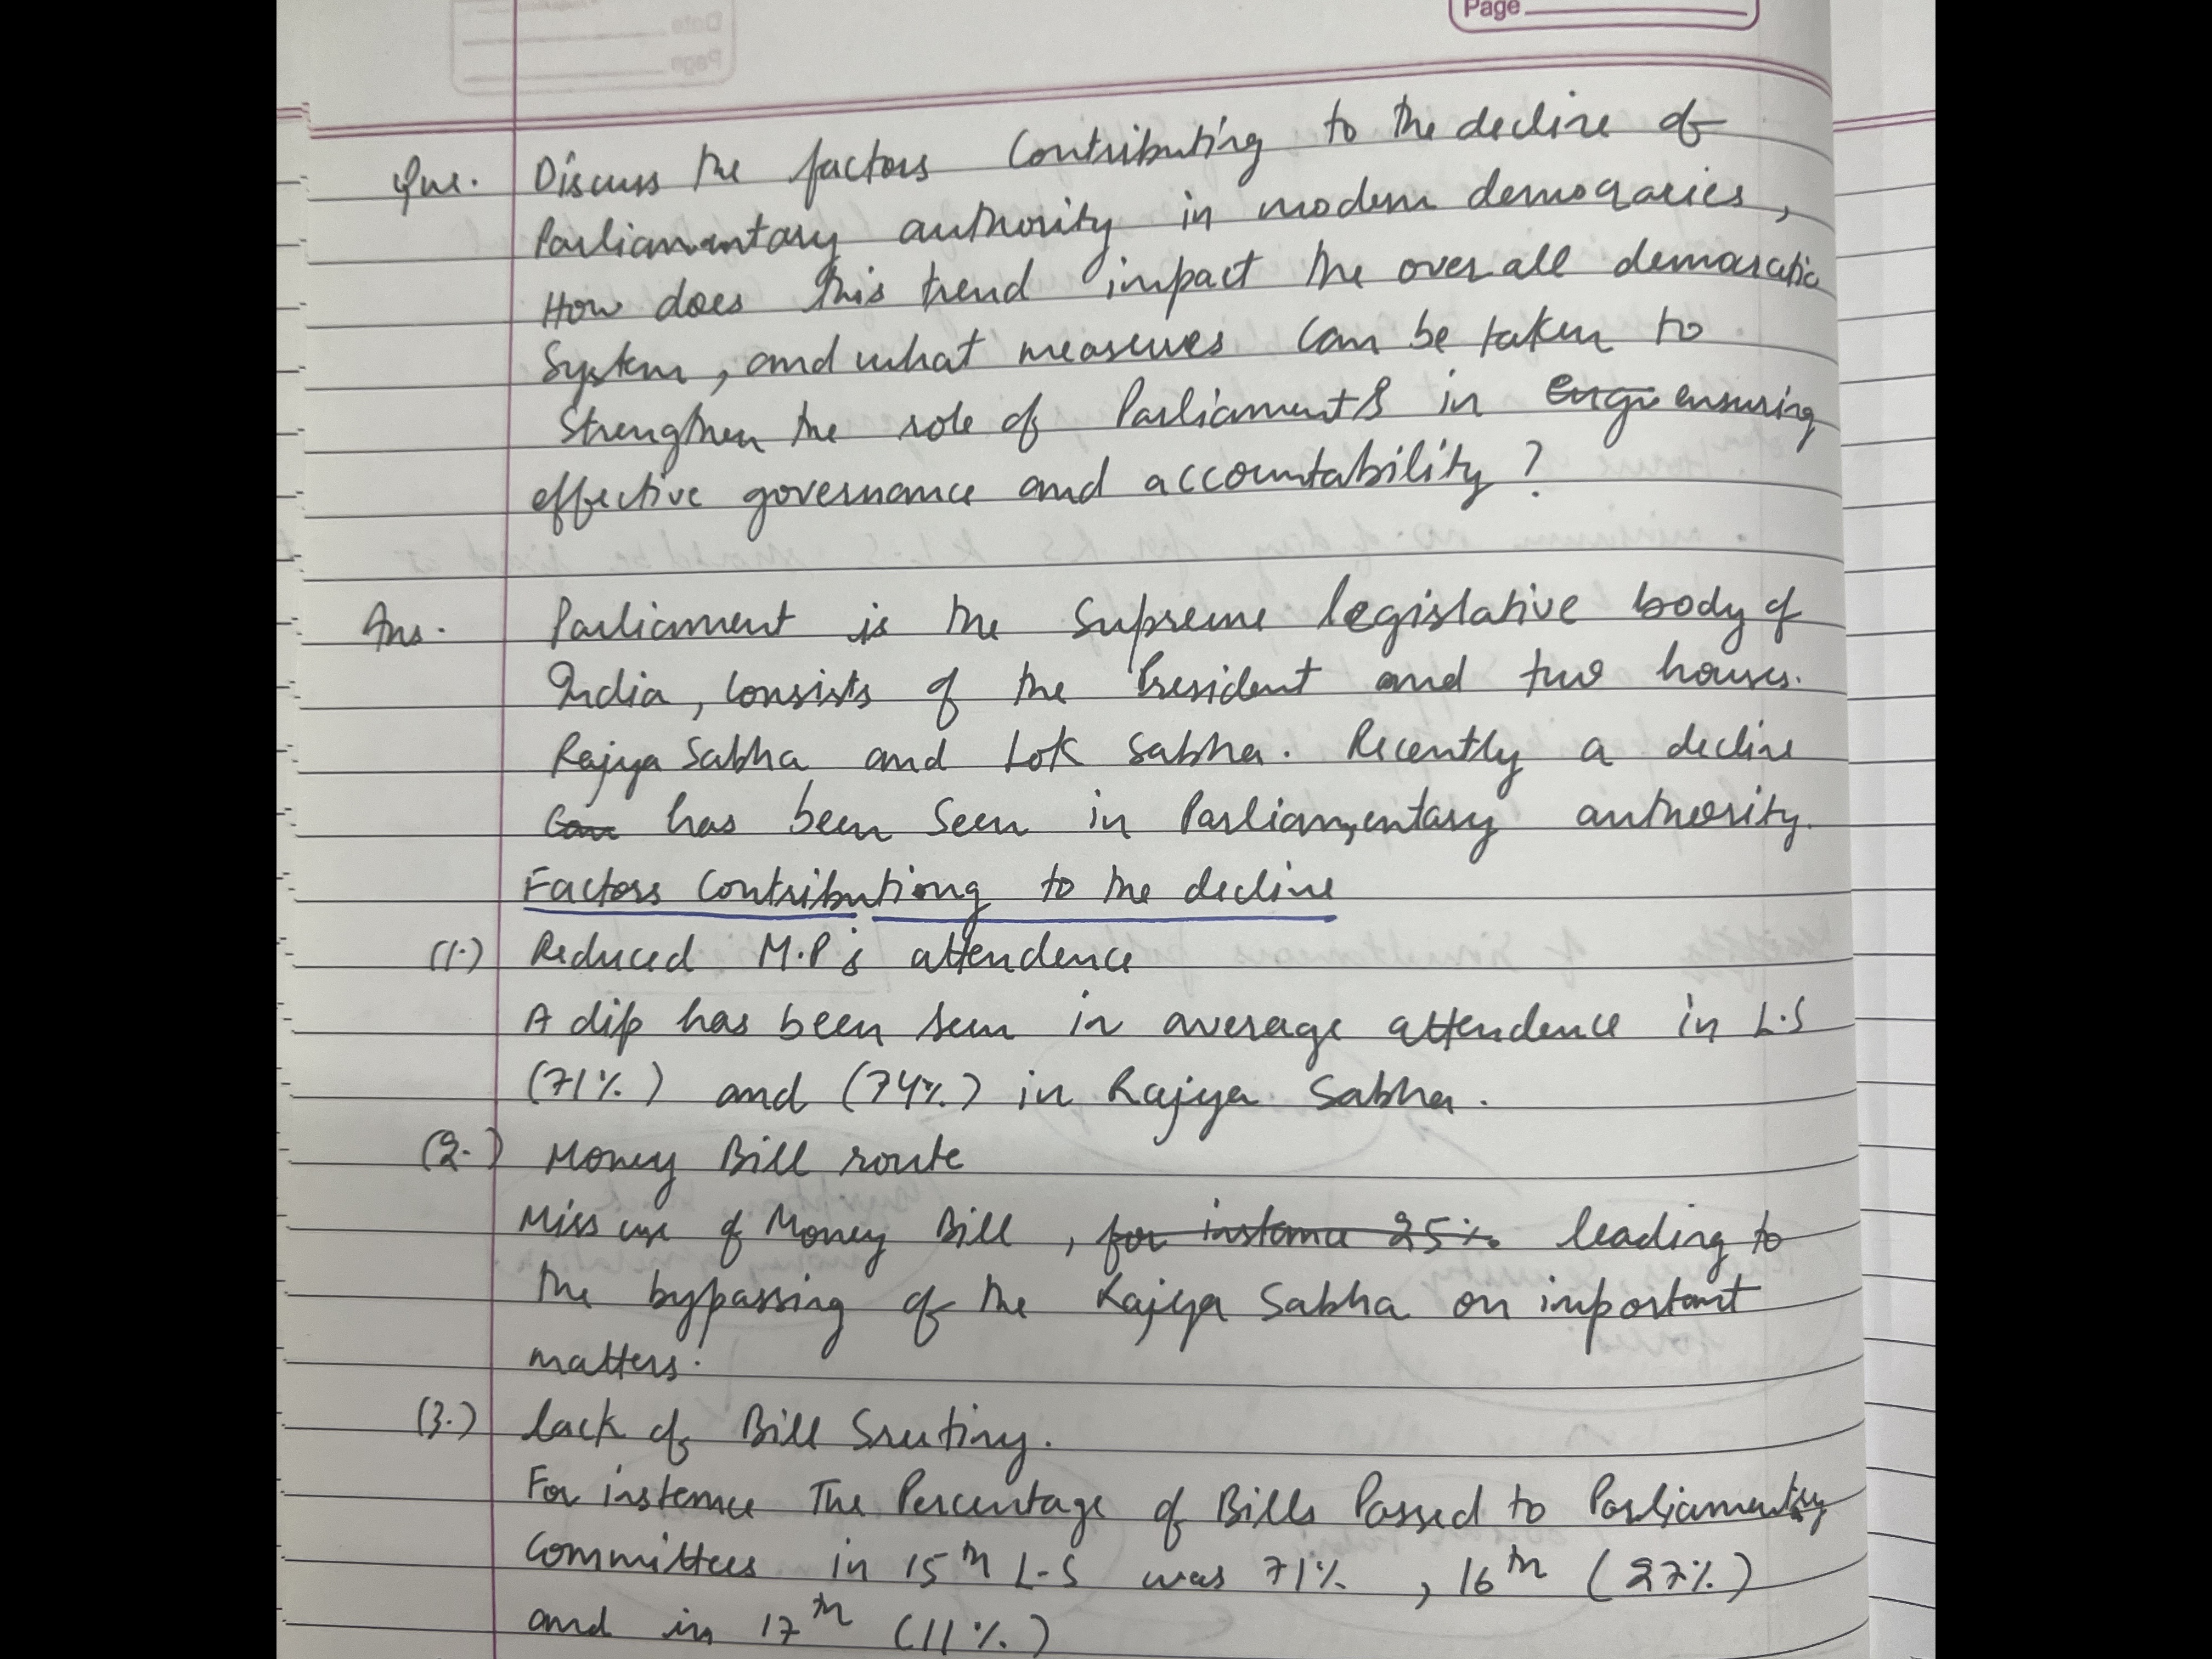 Page
Date
Page
Que. Discuss the factors Contributing to the decline of
Parliamentary authority in modern democracies,
How does this trend impact the over all democratic
System, and what measures can be taken to
Strengthen the role of Parliaments in engi ensuring
effective governance and accountability ?
Ans. Parliament is the Supreme legislative body of
India, consists of the President and two houses.
Rajya Sabha and Lok Sabha. Recently a decline
Can has been Seen in Parliamentary authority.
Factors Contributiong to the decline
(1.) Reduced M.P's attendence
A dip has been seen in average attendence in L.S
(71%) and (74%) in Rajya Sabha.
(2.) Money Bill route
Miss use of Money Bill , for instance 25% leading to
the bypassing of the Rajya Sabha on important
matters.
(3.) Lack of Bill Srutiny.
For instance The Percentage of Bills Passed to Parliamentry
Committees in 15th L.S was 71% , 16th (27%)
and in 17th (11%)